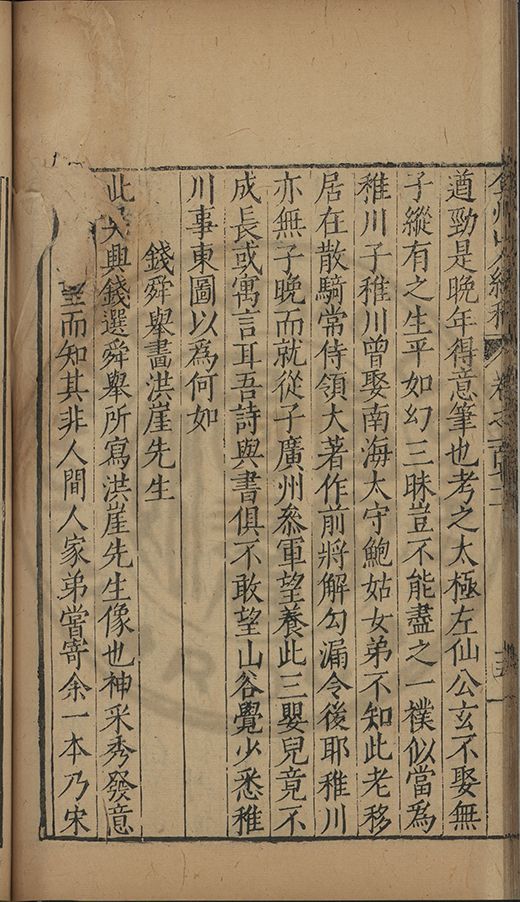 遒勁是晚年得意筆也考之太極左仙公玄不娶無
子縱有之生平如幻三昧豈不能盡之一樸似當為
稚川子稚川曾娶南海太守鮑姑女弟不知此老移
居在散騎常侍領大著作前將解勾漏令後耶稚川
亦無子晚而就從子廣州叅軍望養此三嬰兒竟不
成長或寓言耳吾詩與書俱不敢望山谷覺少悉稚
川事東圖以為何如
錢舜舉畫洪崖先生
此吳興錢選舜舉所寫洪崖先生像也神采秀發意
望而知其非人間人家弟嘗寄余一本乃宋